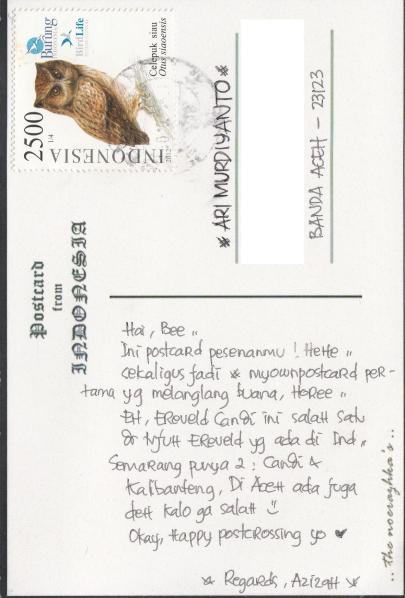 Burung
BirdLife
Celepuk siau
Otus siaoensis
2500
1/4
INDONESIA
2012
Postcard
from
INDONESIA
* ARI MURDIYANTO *
BANDA ACEH - 23123
Hai, Bee ,,
Ini postcard pesenanmu ! HeHe ,,
cekaligus jadi * myownpostcard per-
tama yg melanglang buana, HoRee ,,
EH, EReveld Candi ini salah satu
dr tujuH EReveld yg ada di Ind ,,
Semarang punya 2 : Candi &
Kalibanteng, Di AceH ada juga
deH kalo ga salaH
Okay, Happy postcrossing yo ♥
* Regards, AzizaH *
.. the noerazhka's ..